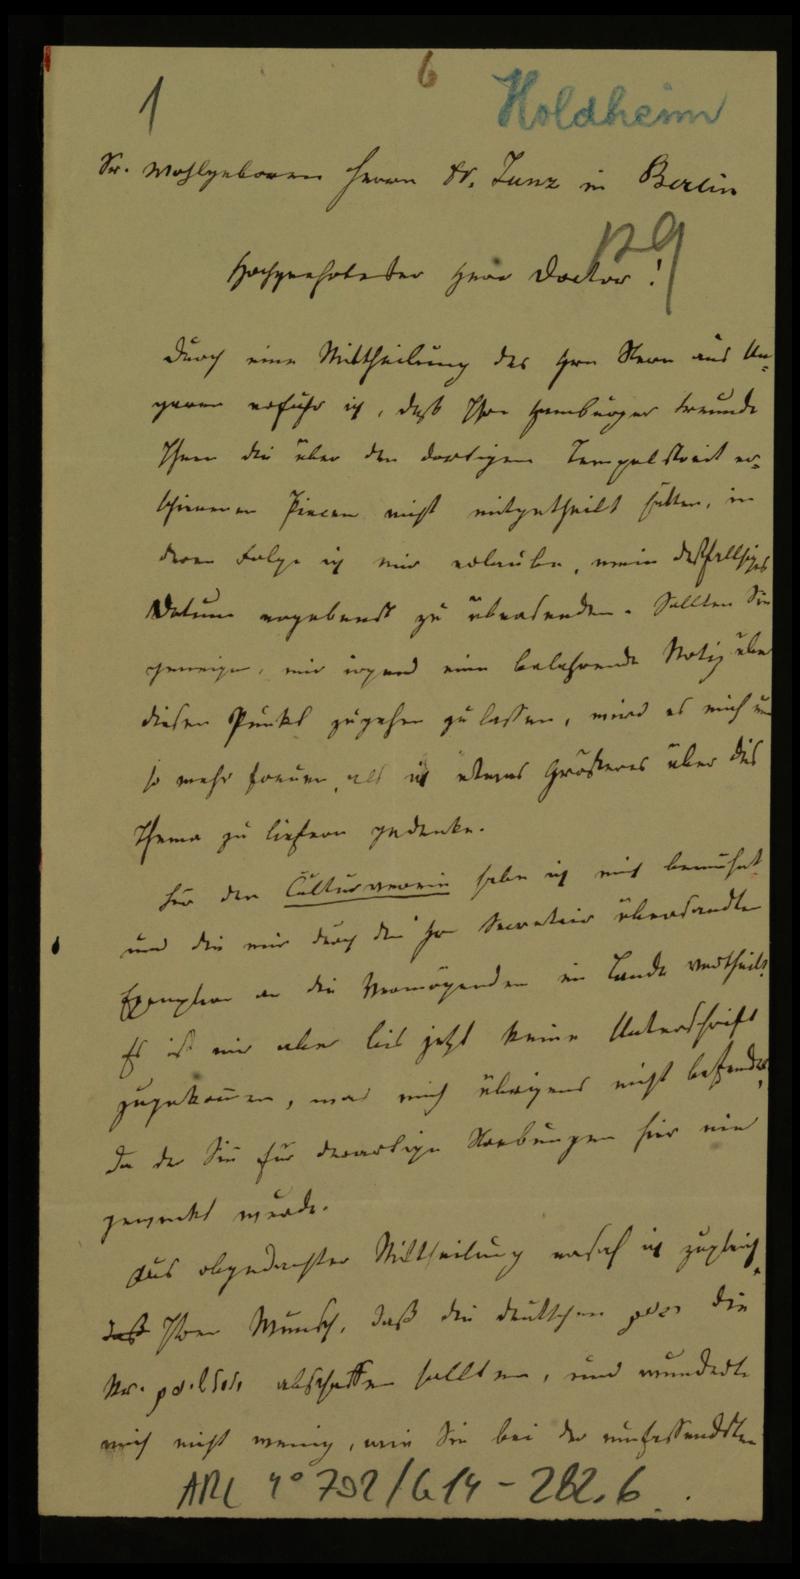 1
6
Holdheim
Sr. Wohlgeboren Herrn Dr. Zunz in Berlin
Hochgeehrtester Herr Doctor!
Durch eine Mittheilung des Hrn Stern aus Un-
garn erfuhr ich, daß Ihre Hamburger Freunde
Ihnen die über den dortigen Tempelstreit er-
schienenen Piecen nicht mitgetheilt hätten, in
deren Folge ich mir erlaube, mein desfallsiges
Votum ergebenst zu übersenden. Sollten Sie
geneigen, mir irgend eine belehrende Notiz über
diesen Punkt zugehen zu lassen, wird es mich um
so mehr freuen, als ich etwas Größeres über dies
Thema zu liefern gedenke.
Für den Culturverein habe ich mich bemühet
und die mir durch den Hr Secretair übersandten
Exemplare an die Vermögenden im Lande vertheilt.
Es ist mir aber bis jetzt keine Unterschrift
zugekommen, was mich übrigens nicht befremdet,
da der Sinn für derartige Strebungen hier nie
geweckt wurde.
Aus obgedachter Mittheilung ersah ich zugleich
daß Ihren Wunsch, daß die deutschen die
abschaffen sollten, und wunderte
mich nicht wenig, wie Sie bei der umfassendsten
ARC 4° 792/G14-282.6